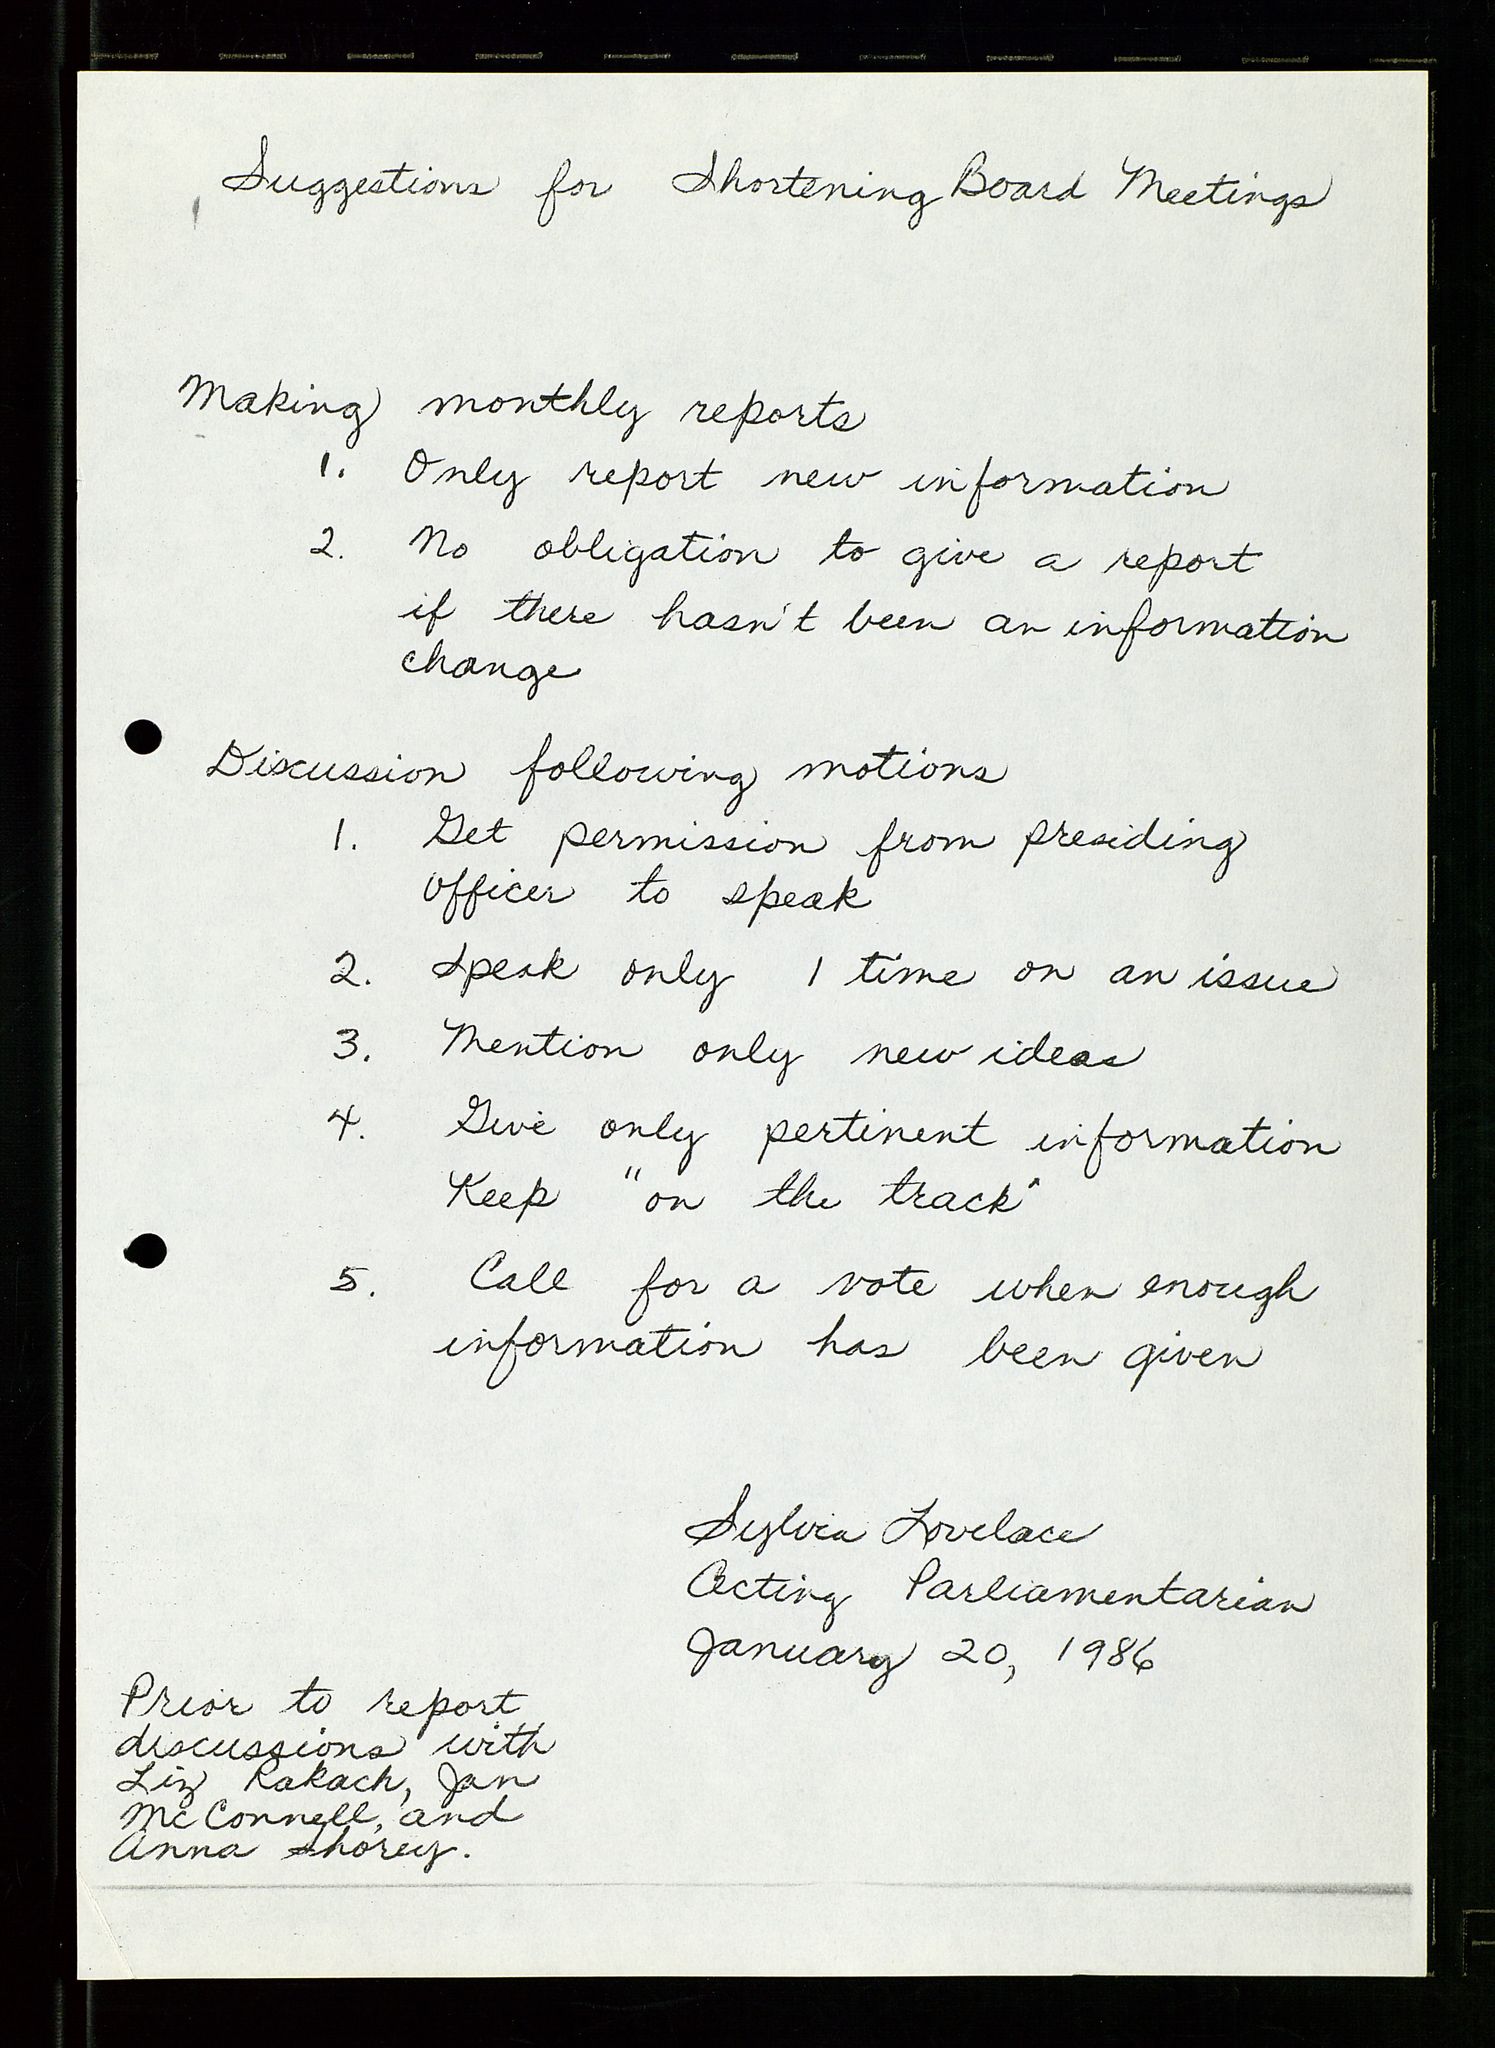 Suggestions for Shortening Board Meetings
Making monthly reports
1. Only report new information
2. No obligation to give a report
if there hasn't been an information
change
Discussion following motions
1. Get permission from presiding
officer to speak
2. Speak only 1 time on an issue
3. Mention only new ideas
4. Give only pertinent information
Keep "on the track"
5. Call for a vote when enough
information has been given
Sylvia Lovelace
Acting Parliamentarian
January 20, 1986
Prior to report
discussions with
Liz Rakach, Jan
McConnell, and
Anna Shorey.